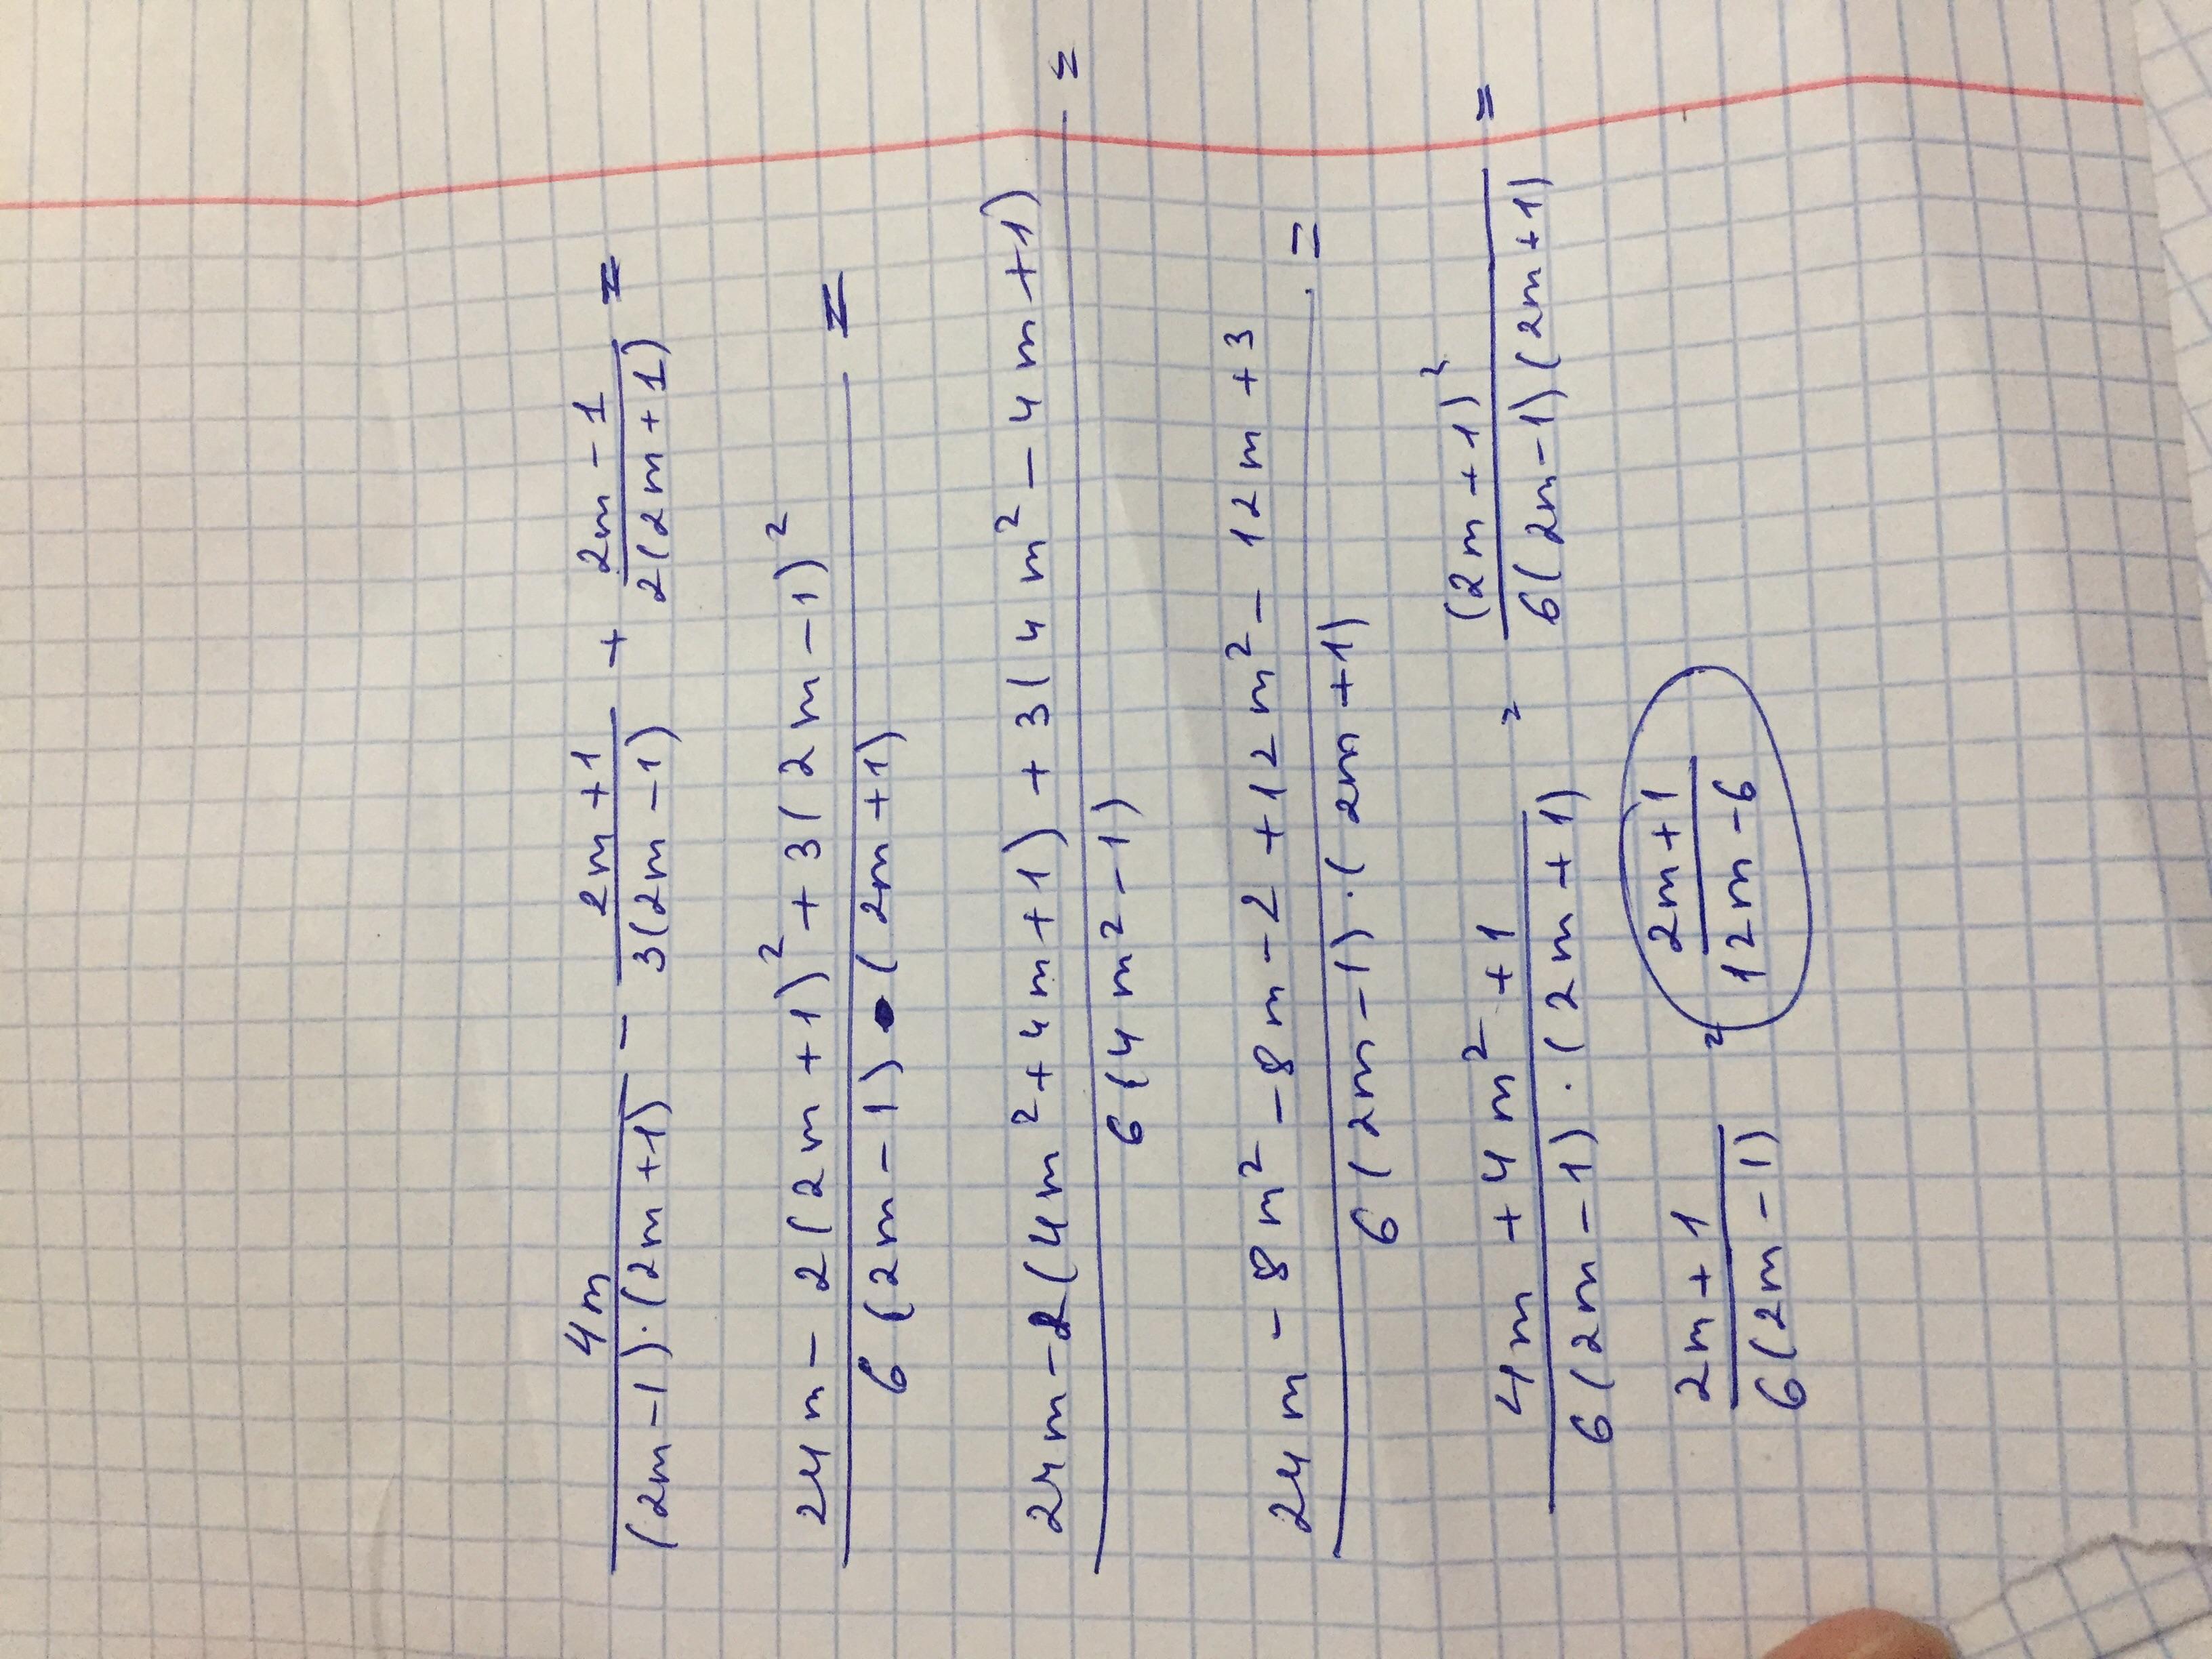 4m/((2m-1)·(2m+1)) - (2m+1)/(3(2m-1)) + (2m-1)/(2(2m+1)) =
(24m-2(2m+1)²+3(2m-1)²)/(6(2m-1)·(2m+1)) =
(24m-2(4m²+4m+1)+3(4m²-4m+1))/(6(4m²-1)) =
(24m-8m²-8m-2+12m²-12m+3)/(6(2m-1)·(2m+1)) =
(4m+4m²+1)/(6(2m-1)·(2m+1)) = (2m+1)²/(6(2m-1)(2m+1)) =
(2m+1)/(6(2m-1)) = (2m+1)/(12m-6)